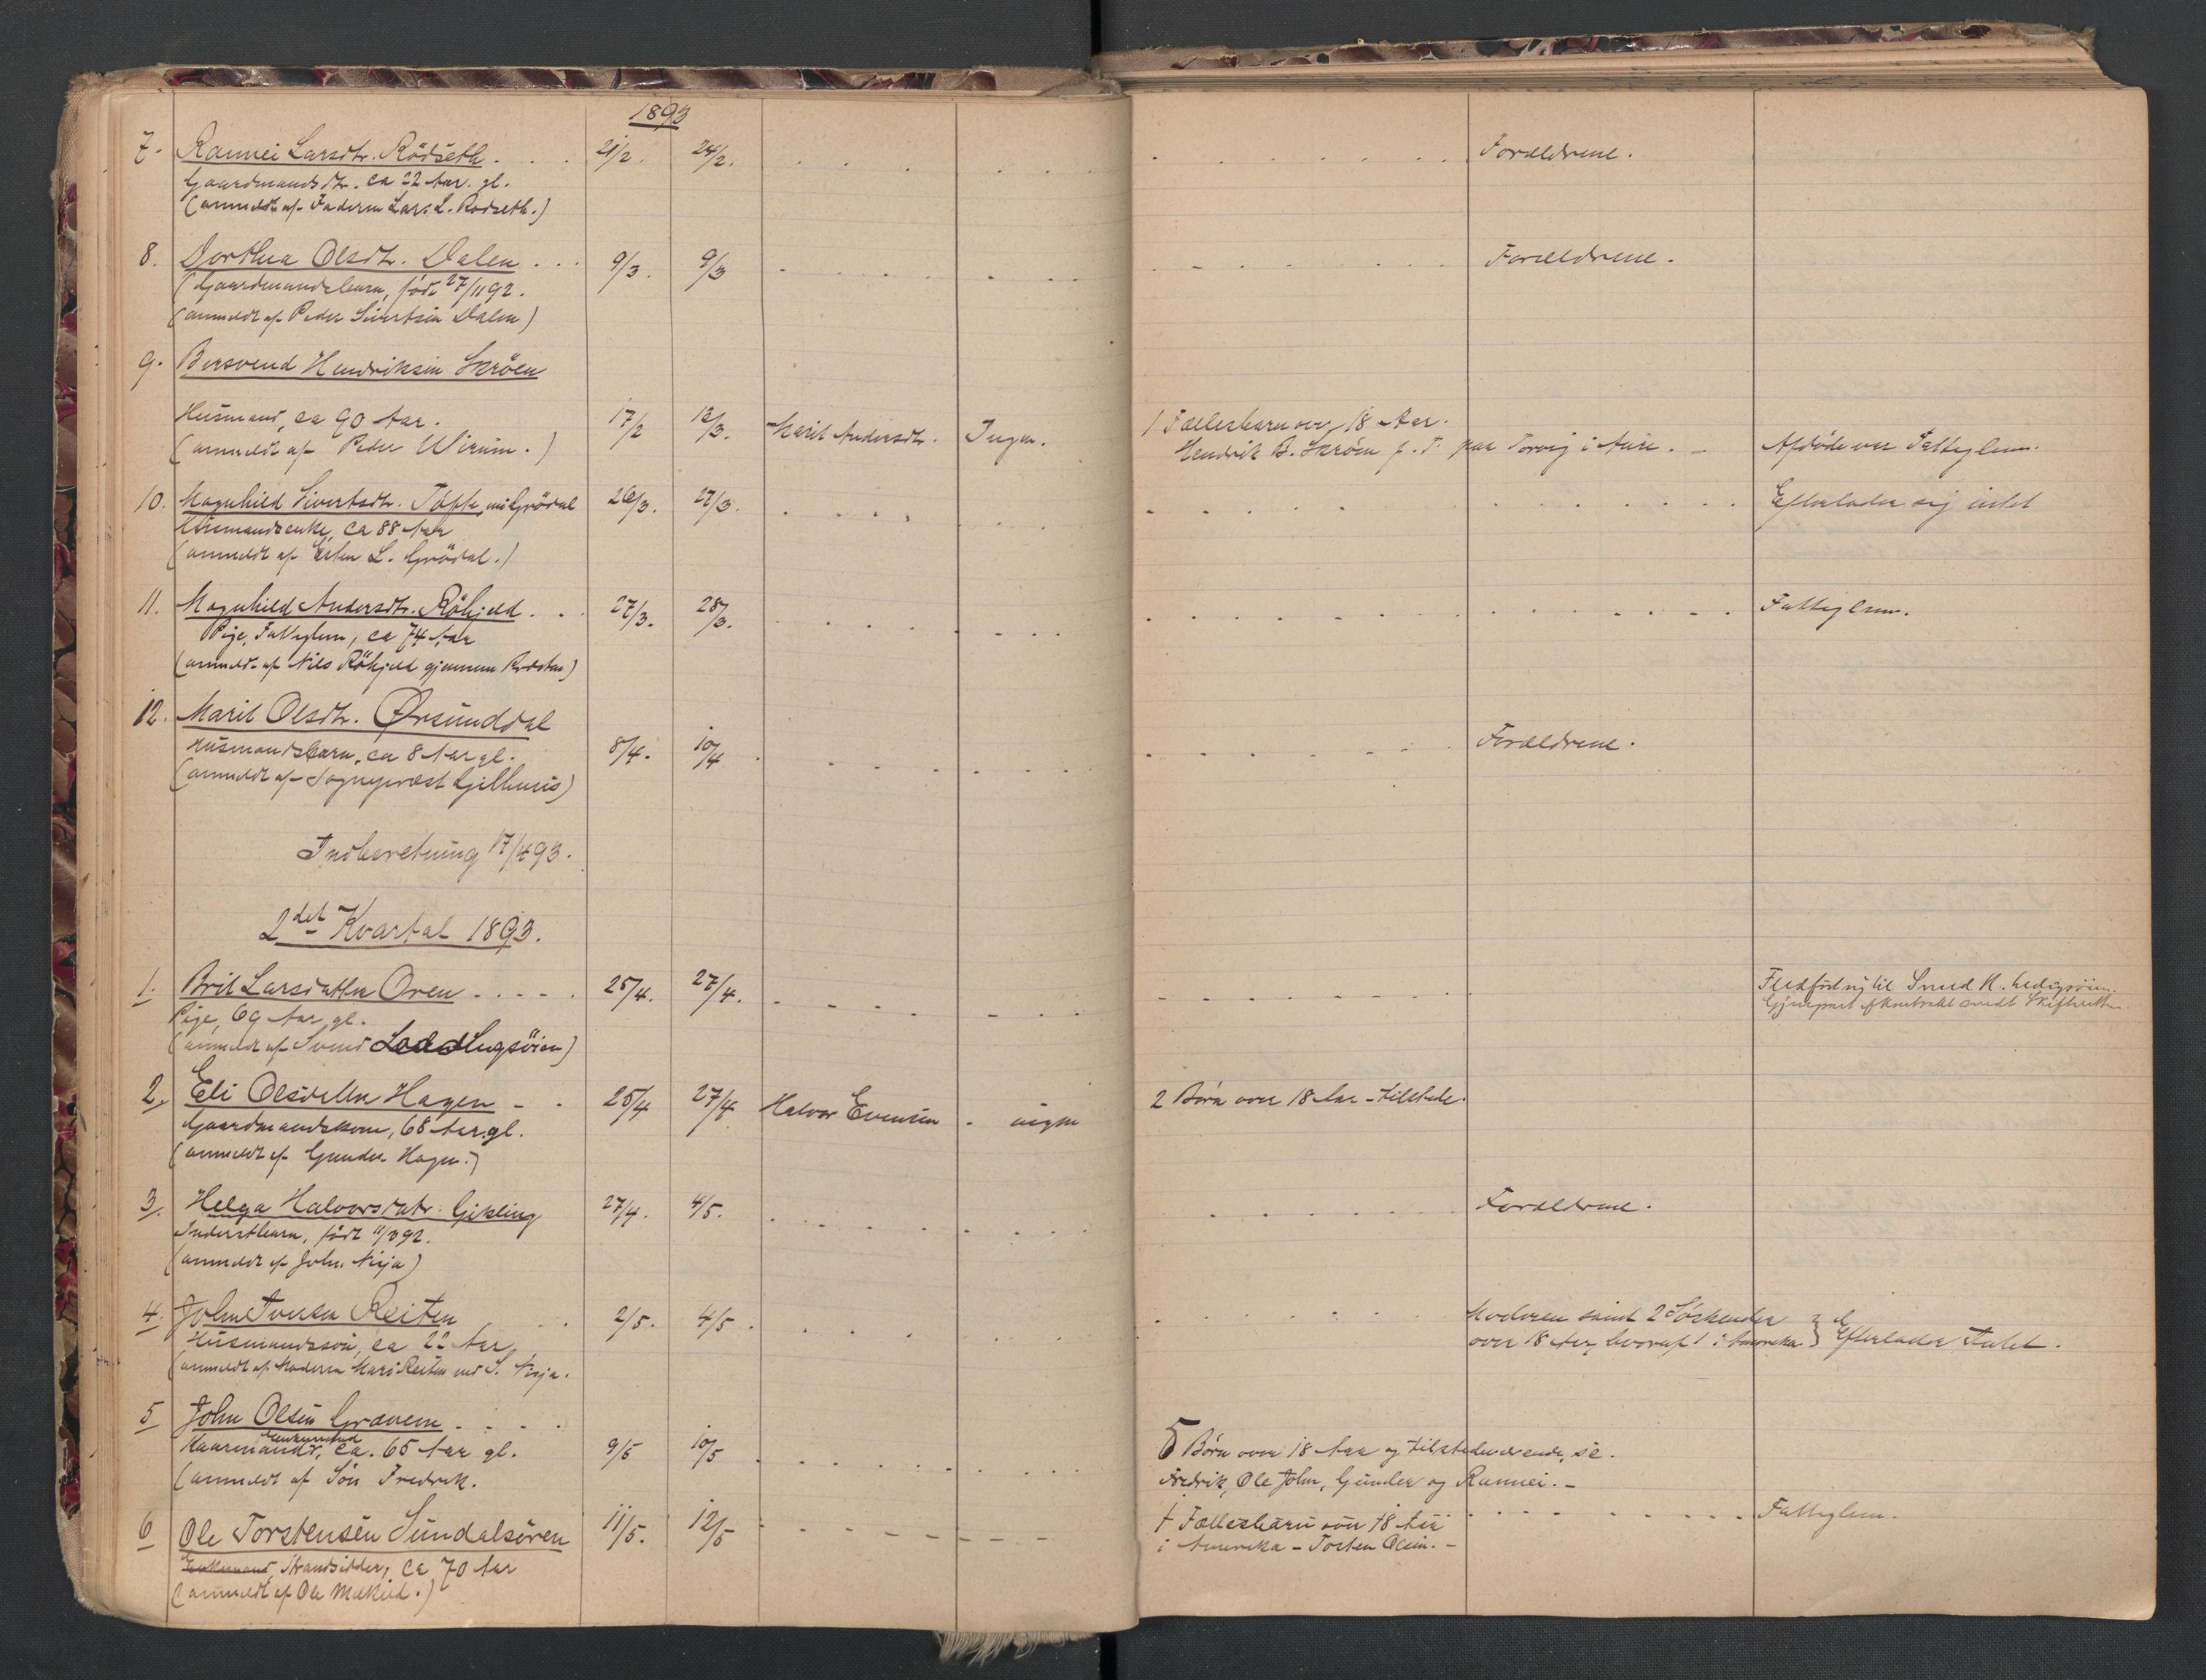 1893
7. Rannei Larsdtr. Rödseth . . . 21/2. 24/2. Forældrene.
Gaardmandsdtr. ca 22 Aar. gl.
(anmeldt af Faderen Lars L. Rødseth.)
8. Dorthea Olsdtr. Dalen . . . 9/3. 9/3 Forældrene.
(Gaardmandsbarn, født 27/11 92.
(anmeldt af Peder Sivertsen Dalen)
9. Bersvend Hendriksen Skröen
Husmand, ca 90 Aar. 17/2 12/3. Marit Andersdtr. Ingen. 1 Fællesbarn over 18 Aar.
(anmeldt af Peder Wirum.) Hendrik B. Skröen p. T. paa Torvig i Aure. - Afdøde var Fattiglem.
10. Magnhild Sivertsdtr. Tofte, Grödal 26/3. 27/3. Efterlader sig intet
Husmandsenke, ca 88 Aar
(anmeldt af Esten L. Grödal.)
11. Magnhild Andersdtr. Röhjeld . . . 27/3. 28/3. Fattiglem.
Pige, Fattiglem, ca 74 Aar
(anmeldt af Nils Röhjeld gjennem Præsten)
12. Marit Olsdtr. Ørsunddal
Husmandsbarn, ca 8 Aar gl. 8/4. 10/4 Forældrene.
(anmeldt af Sogneprest Gjelhuus)
Indberetning 17/4 93.
2det Kvartal 1893.
1. Brit Larsdatter Oren . . . . . 25/4. 27/4. Fledført sig til Svend H.
Pige, 69 Aar gl. Gjenpart af Kontrakt sendt Skifteretten
(anmeldt af Svend Hegsöien)
2. Eli Olsdatter Hagen - - 25/4 27/4 Halvor Evensen - ingen 2 Børn over 18 Aar - tilstede.
Gaardmandskone, 68 Aar gl.
(anmeldt af Gunder Hagen.)
3. Helga Halvorsdatr. Gikling 27/4. 4/5. Forældrene.
Inderstbarn, født 11/3 92.
(anmeldt af John Nisja)
4. John Iversen Reiten 2/5. 4/5. Moderen samt 2 Söskender
Husmandssøn, ca 22 Aar over 18 Aar, hvoraf 1 i Amerika } Efterlader Intet.
(anmeldt af Moderen Mari Reiten ved S. Nisja.
5 John Olsen Gravem . . . .
Enkemand
Kaarmand, ca. 65 Aar gl. 9/5 10/5 5 Børn over 18 Aar og tilstedeværende, se.
(anmeldt af Søn Fredrik. Fredrik, Ole John, Gunder og Rannei. -
6 Ole Torstensen Sundalsören 11/5. 12/5 1 Fællesbarn over 18 Aar Fattiglem.
Enkemand, Strandsidder, ca 70 Aar i Amerika - Torsten Olsen. -
(anmeldt af Ole Melkild.)